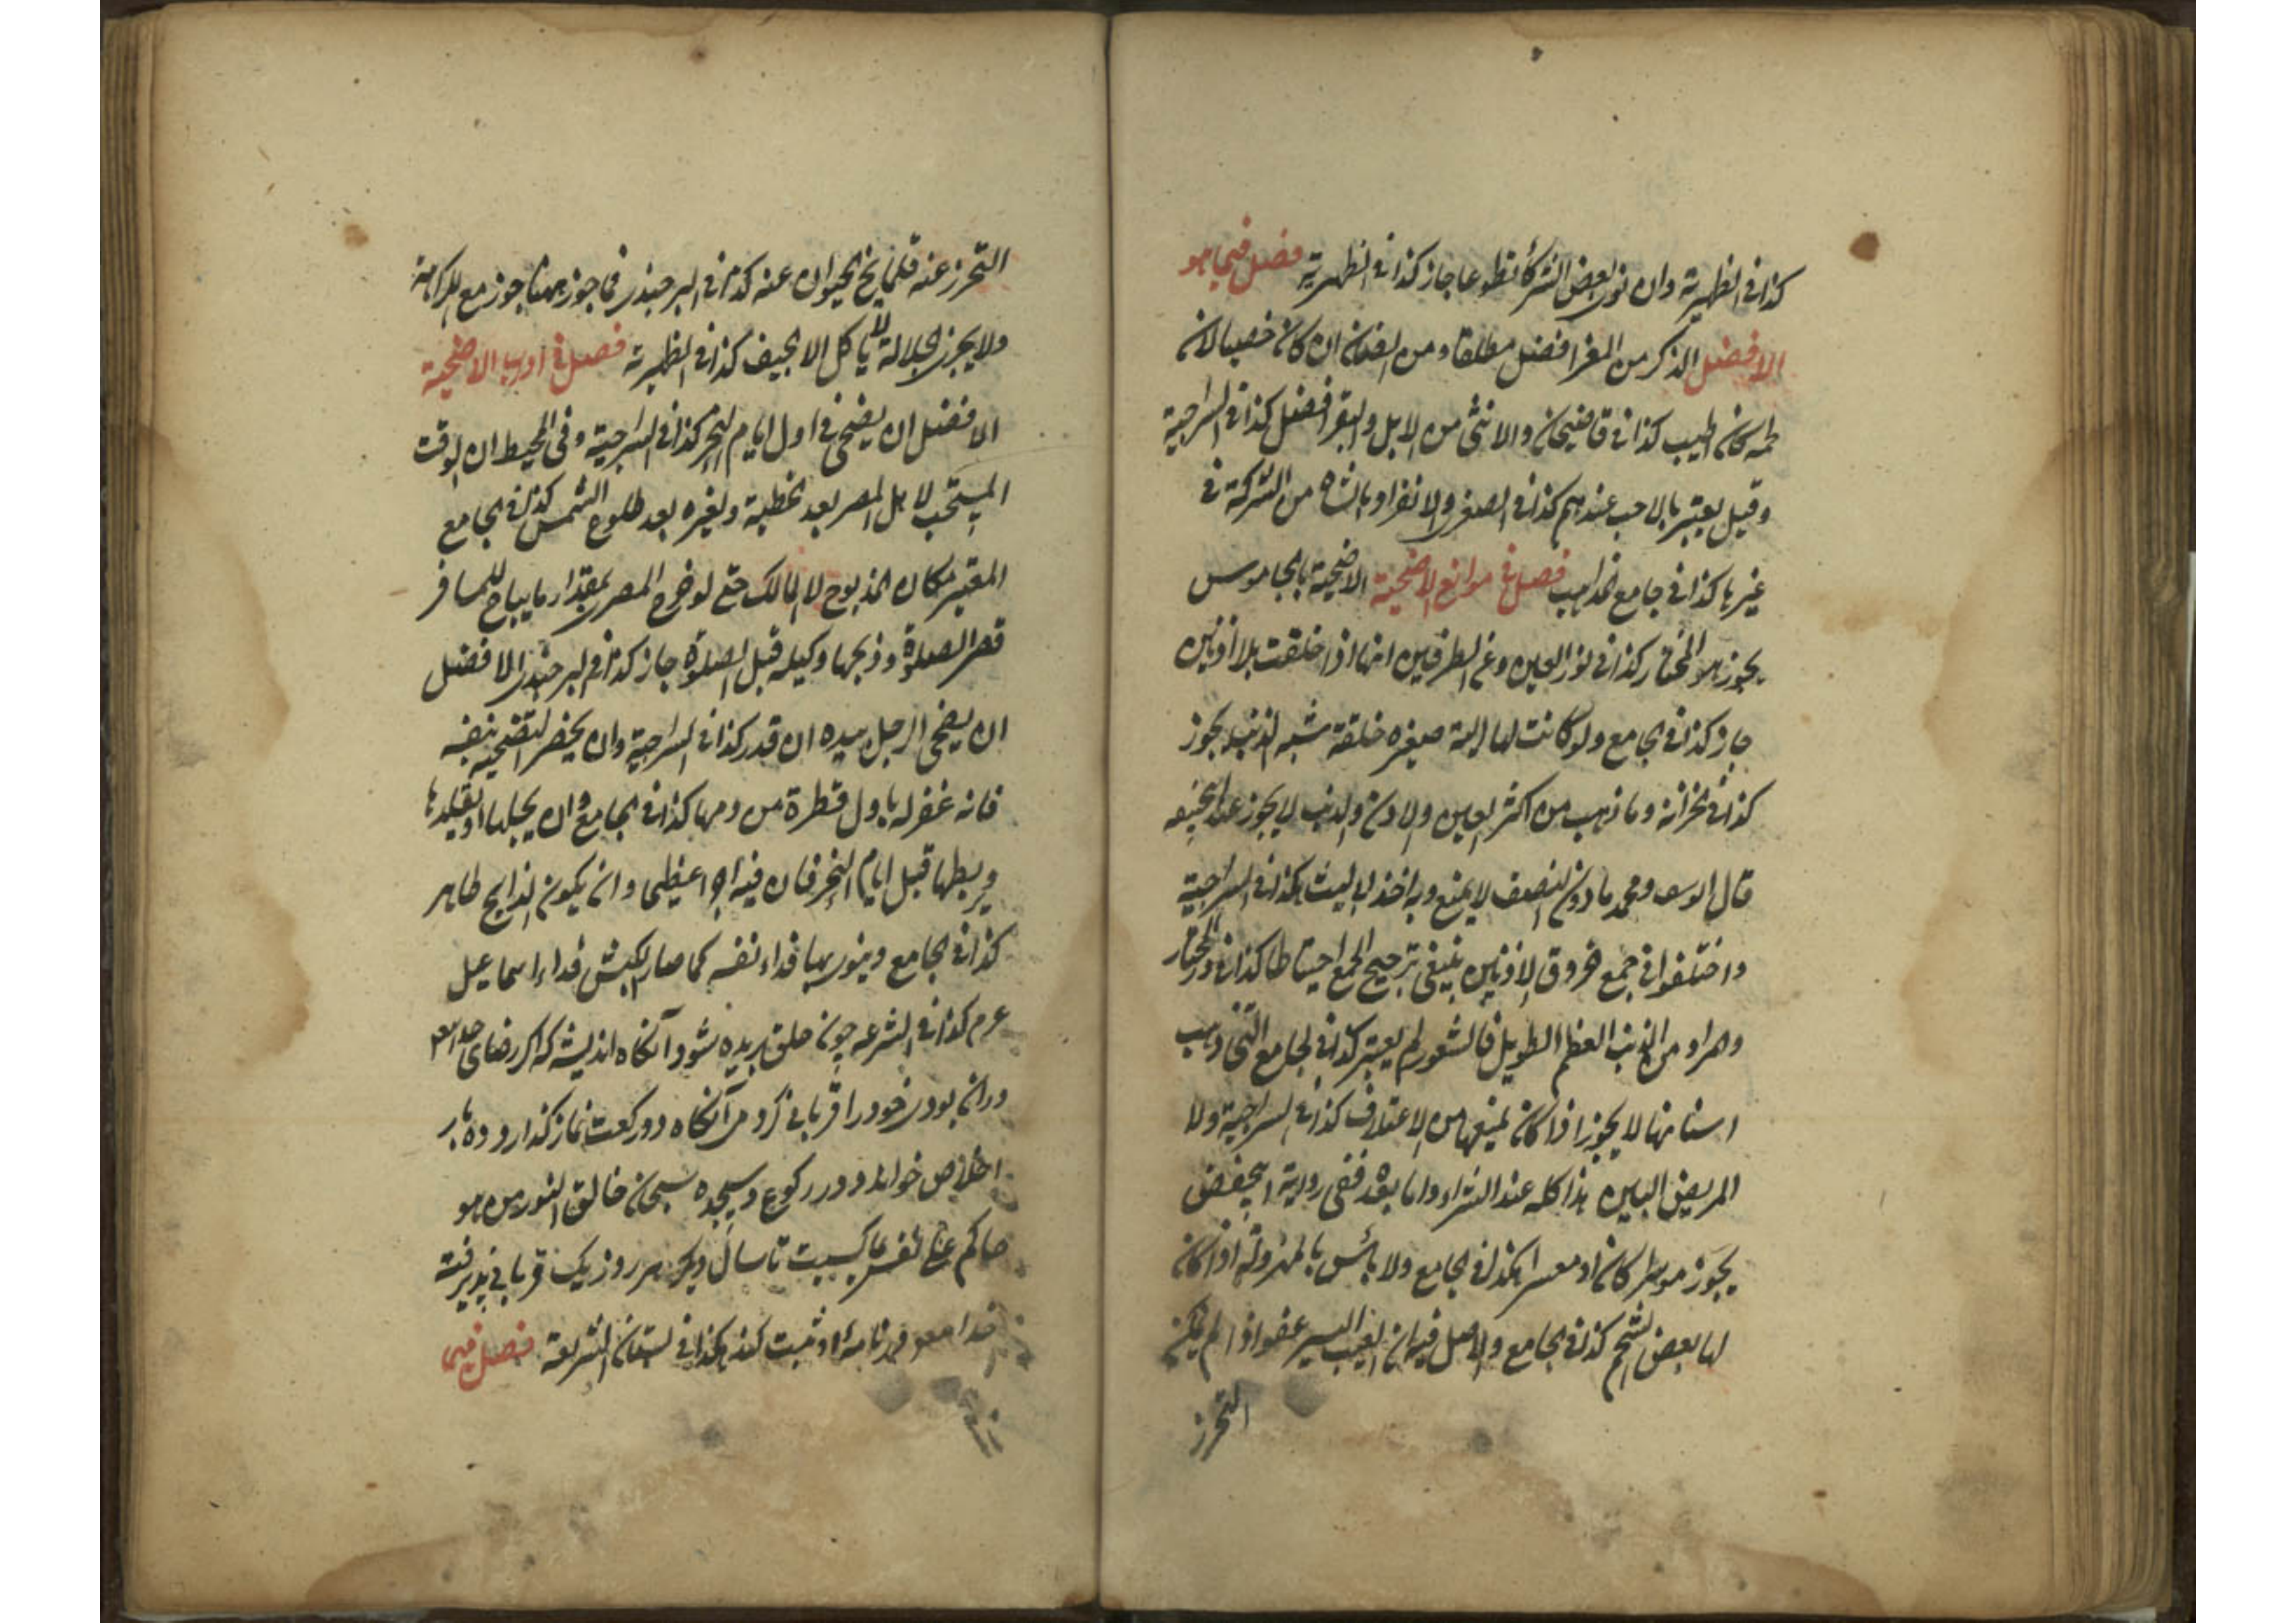 كذا في الظهيرية وان نوى بعض الشركاء تطوعا جاز كذا في الظهيرية فصل فيما هو
الافضل الذكر من المعز افضل مطلقا ومن الضان ان كان خصيا لان
لحمه كان اطيب كذا في قاضيخان والانثى من الابل والبقر افضل كذا في السراجية
وقيل يعتبر بالاحب عندهم كذا في الصغرى والانفراد بالشاة من الشركة في
غيرها كذا في جامع المذاهب فصل في موانع الاضحية الاضحية بالجاموس
يجوز هو المختار كذا في نور العين وعن الطرفين انها اذا خلقت بلا اذنين
جاز كذا في الجامع ولو كانت لها الية صغيره خلقة شبه الذنب يجوز
كذا في الخزانة وما ذهب من اكثر العين والاذن والذنب لا يجوز عند
قال ومحمد ما دون النصف لا يمنع وبه اخذ ابو الليث كذا في السراجية
واختلفوا في جمع خروق الاذنين ينبغي ترجيح الجمع احتياطا كذا في در المختار
والمراد من الذنب العظم الطويل فالشعور لم يعتبر كذا في الجامع التي ذهب
اسنانها لا يجوز اذا كان يمنعها من الاعتلاف كذا في السراجية ولا
المريض البين هذا كله عند الشراء واما بعده ففي رواية
يجوز موسرا كان او معسرا كذا في الجامع ولا بأس بالمهزولة اذا كان
لها بعض الشحم كذا في الجامع والاصل فيه ان العيب اليسير عفو اذا لم يمكن
التحرز
التحرز عنه قلما يخ الحيوان عنه كذا في البرجندى فما جوز ههنا جوز مع الكراهة
ولا يجوز الجلالة لا ياكل الا الجيف كذا في الظهيرية فصل في اداب الاضحية
الافضل ان يضحى في اول ايام النحر كذا في السراجية وفي المحيط ان الوقت
المستحب لاهل المصر بعد الخطبة ولغيره بعد طلوع الشمس كذا في الجامع
المعتبر مكان المذبوح لا المالك حتى لو خرج المصر بمقدار ما يباح للمسافر
قصر الصلوة وذبحها وكيله قبل الصلوة جاز كذا في البرجندى الافضل
ان يضحى الرجل بيده ان قدر كذا في السراجية وان يحضر التضحية بنفسه
فانه غفر له باول قطرة من دمها كذا في الجامع وان يجللها او يقلدها
ويربطها قبل ايام النحر فان فيه اجرا عظيما وان يكون الذابح طاهر
كذا في الجامع وينوى بها فداء نفسه كما صار الكبش فداء اسماعيل
عرم كذا في الشرعه چون حلق بريده شود آنگاه انديشه كه اگر رضاى
دران بودى خود را قربانى كردمى آنگاه دو ركعت نماز گذارد و ده بار
اخلاص خواند و در ركوع وسجده سبحان خالق النور من هو
حاكم على نفس بما كسبت تا سال ديگر هر روز يك قربانى پذيرفته
خدا در نامه او ثبت كند كذا في بستان الشريعة فصل فيما